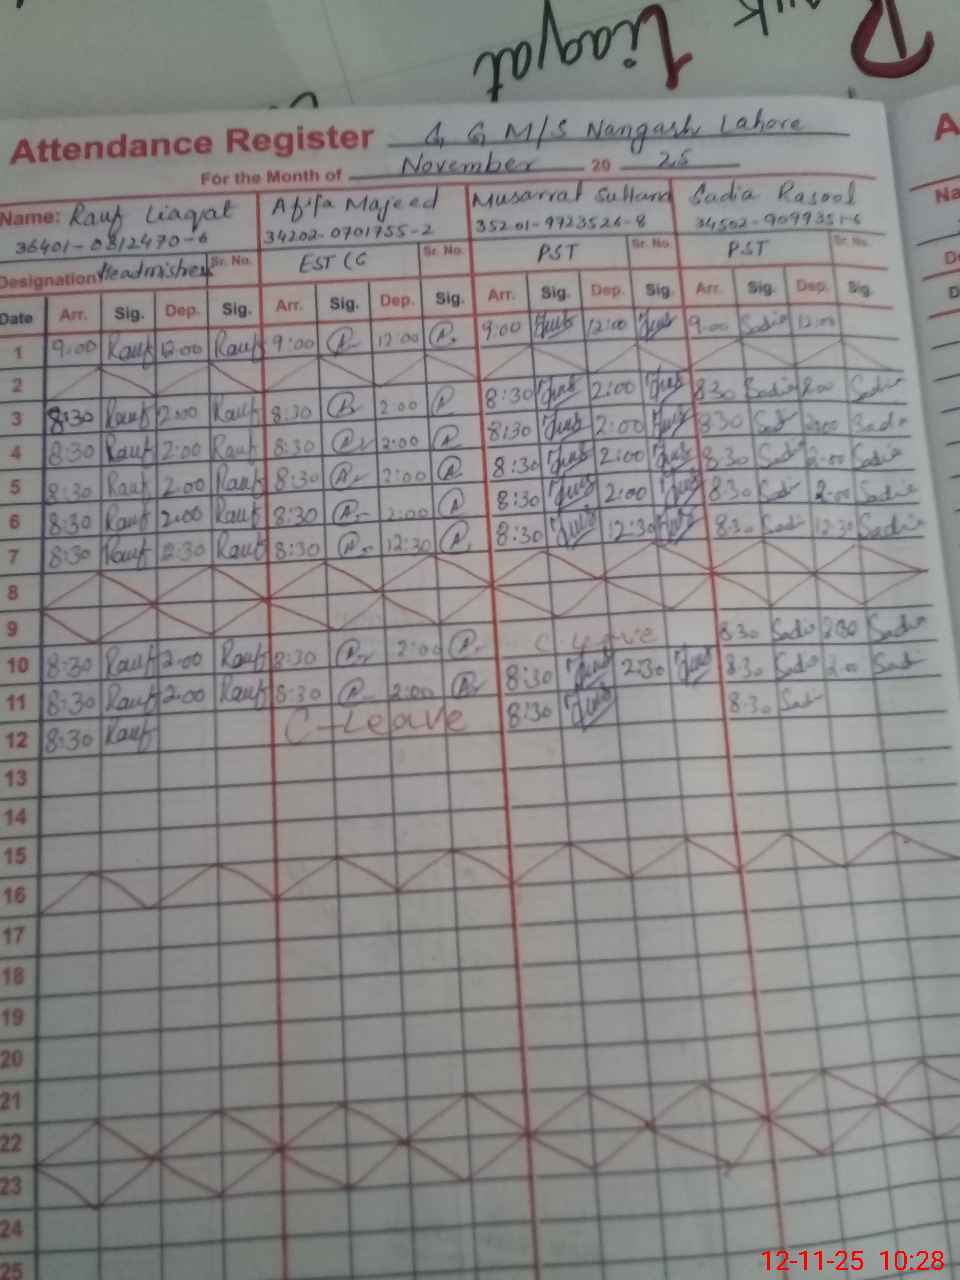 Liaqat
Attendance Register G G M/S Nangash Lahore
For the Month of November 20 25
Name: Rauf Liaqat Afifa Majeed Musarrat Sultana Sadia Rasool
36401-0312470-6 34202-0701755-2 35201-9723526-8 34502-9099351-6
Designation Sr. No. EST (G Sr. No. PST Sr. No. PST Sr. No.
Date Arr. Sig. Dep. Sig. Arr. Sig. Dep. Sig. Arr. Sig. Dep. Sig. Arr. Sig. Dep. Sig.
1 9:00 Rauf 12:00 Rauf 9:00 A 12:00 A 9:00 12:00 9:00 Sadia 12:00
2
3 8:30 Rauf 2:00 Rauf 8:30 A 2:00 A 8:30 2:00 8:30 Sadia 2:00 Sadia
4 8:30 Rauf 2:00 Rauf 8:30 A 2:00 A 8:30 2:00 8:30 Sad 2:00 Sadia
5 8:30 Rauf 2:00 Rauf 8:30 A 2:00 A 8:30 2:00 8:30 Sad 2:00 Sadia
6 8:30 Rauf 2:00 Rauf 8:30 A 2:00 A 8:30 2:00 8:30 Sadi 2:00 Sadia
7 8:30 Rauf 12:30 Rauf 8:30 A 12:30 A 8:30 12:30 8:30 Sad 12:30 Sadia
8
9
10 8:30 Rauf 2:00 Rauf 8:30 A 2:00 A C-Leave 8:30 Sadia 2:00 Sadia
11 8:30 Rauf 2:00 Rauf 8:30 A 2:00 A 8:30 2:30 8:30 Sadi 2:00 Sad
12 8:30 Rauf C-Leave 8:30 8:30 Sad
13
14
15
16
17
18
19
20
21
22
23
24
25
A
Na
D
12-11-25 10:28